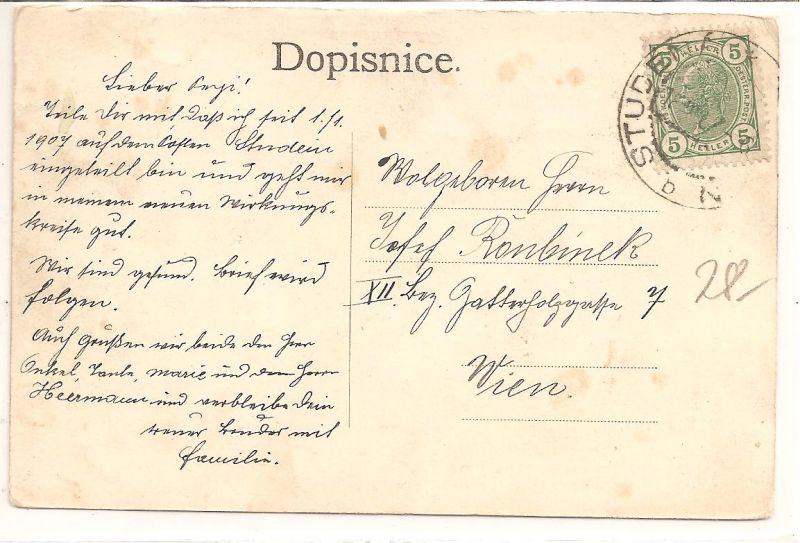 Dopisnice.
Lieber Pepi!
Teile Dir mit daß ich seit 1./1.
1907 auf dem Posten Studein
eingeteilt bin und geht mir
in meinem neuen Wirkungs-
kreise gut.
Wir sind gesund. Brief wird
folgen.
Auch Grüßen wir beide den Herr
Onkel, Tante, Marie und dem Herrn
Heermann und verbleibe Dein
treuer Bruder mit
Familie.
5 HELLER 5
5 HELLER 5
STUDE
b
Wolgeboren Herrn
Josef Roubinek
XII. Bez. Gatterholzgasse 7
Wien.
28-